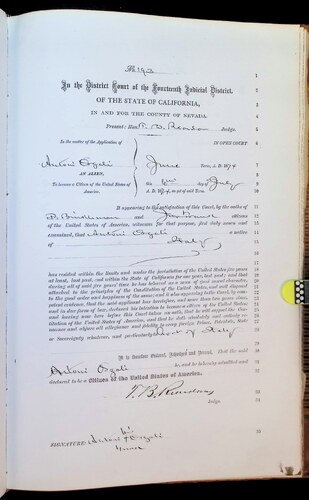 No 193
In the District Court of the Fourteenth Judicial District.
OF THE STATE OF CALIFORNIA,
IN AND FOR THE COUNTY OF NEVADA.
Present: Hon. T. B. Reardan Judge.
In the matter of the Application of
IN OPEN COURT
Antoni
AN ALIEN,
June Term, A.D. 1874
To become a Citizen of the United States of America.
this day of July
A.D. 1874, as part of said Term.
It appearing to the satisfaction of this Court, by the oaths of
and citizens
of the United States, witnesses for that purpose, first duly sworn and
examined, that Antoni a native
of Italy
has resided within the limits and under the jurisdiction of the United States five years
at least, last past, and within the State of California for one year, last past; and that
during all of said five years' time he has behaved as a man of good moral character,
attached to the principles of the Constitution of the United States, and well disposed
to the good order and happiness of the same; and it also appearing to this Court, by com-
petent evidence, that the said applicant has heretofore, and more than two years since,
and in due form of law, declared his intention to become a citizen of the United States
and having now here before this Court taken an oath, that he will support the Con-
stitution of the United States of America, and that he doth absolutely and entirely re-
nounce and abjure all allegiance and fidelity to every foreign Prince, Potentate, State
or Sovereignty whatever, and particularly of Italy
It is therefore Ordered, Adjudged and Decreed, That the said
Antoni be, and he is hereby admitted and
declared to be a Citizen of the United States of America.
T. B. Reardan
Judge.
his
SIGNATURE: Antoni X
mark